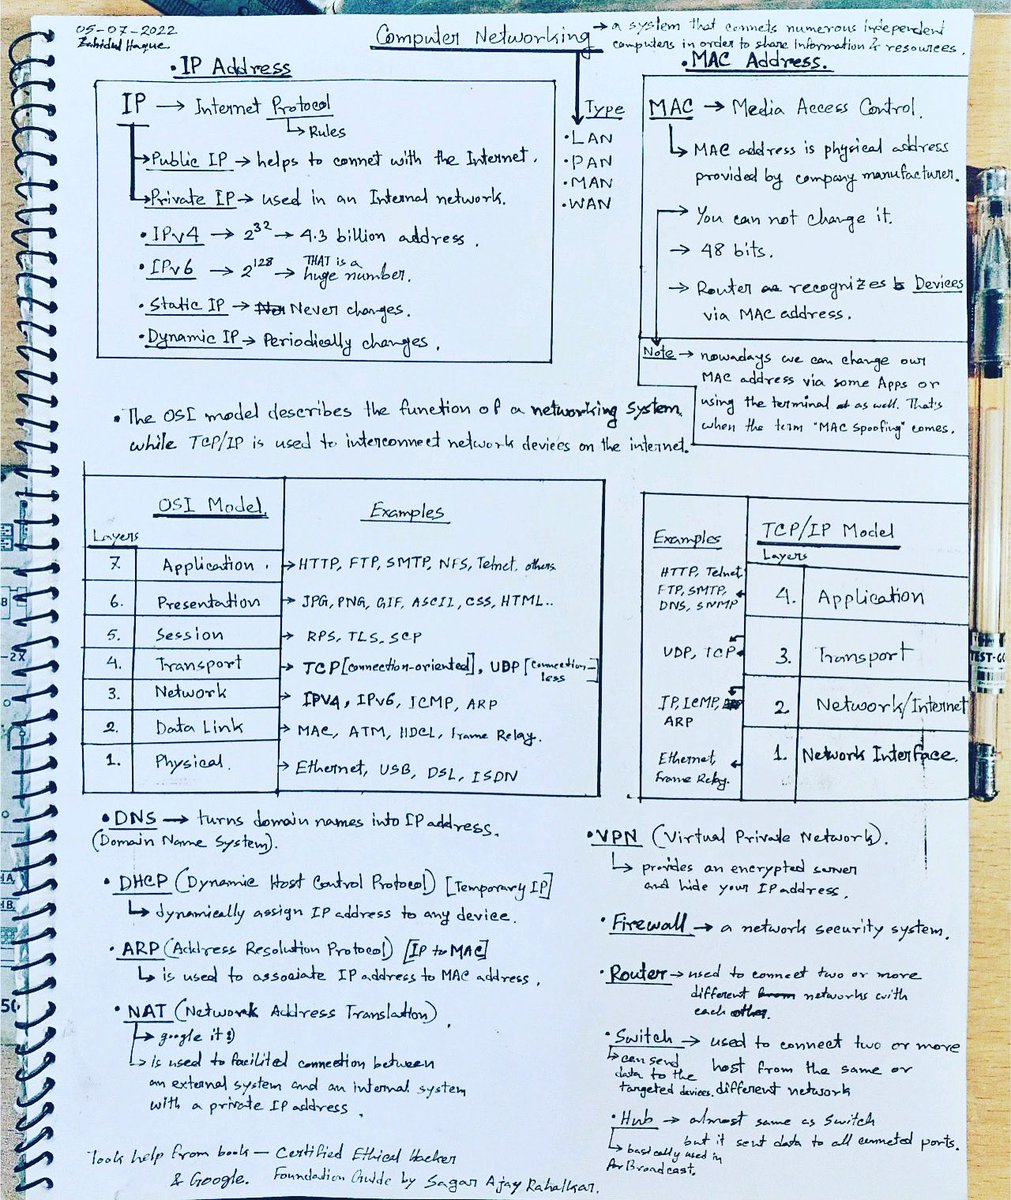 05-07-2022
Zahidul Haque
Computer Networking → a system that connets numerous independent
computers in order to share information & resources.
• IP Address
IP → Internet Protocol
↳ Rules
→ Public IP → helps to connet with the Internet.
→ Private IP → used in an Internal network.
• IPv4 → 2^32 → 4.3 billion address.
• IPv6 → 2^128 → THAT is a
huge number.
• Static IP → Never changes.
• Dynamic IP → Periodically changes.
Type
• LAN
• PAN
• MAN
• WAN
• MAC Address.
MAC → Media Access Control.
↳ MAC address is physical address
provided by company manufacturer.
→ You can not change it.
→ 48 bits.
→ Router recognizes Devices
via MAC address.
Note → nowadays we can change our
MAC address via some Apps or
using the terminal as well. That's
when the term "MAC spoofing" comes.
• The OSI model describes the function of a networking system,
while TCP/IP is used to interconnect network devices on the internet.
OSI Model
Examples
Layers
7. Application. → HTTP, FTP, SMTP, NFS, Telnet, others
6. Presentation → JPG, PNG, GIF, ASCII, CSS, HTML..
5. Session → RPS, TLS, SCP
4. Transport → TCP [connection-oriented], UDP [connection-
less]
3. Network → IPV4, IPv6, ICMP, ARP
2. Data Link → MAC, ATM, HDCL, Frame Relay.
1. Physical. → Ethernet, USB, DSL, ISDN
TCP/IP Model
Examples
Layers
HTTP, Telnet
FTP, SMTP,
DNS, SNMP
4. Application
UDP, TCP
3. Transport
IP, ICMP,
ARP
2. Network/Internet
Ethernet,
Frame Relay.
1. Network Interface.
• DNS → turns domain names into IP address.
(Domain Name System).
• DHCP (Dynamic Host Control Protocol) [Temporary IP]
↳ dynamically assign IP address to any device.
• ARP (Address Resolution Protocol) [IP to MAC]
↳ is used to associate IP address to MAC address.
• NAT (Network Address Translation).
→ google it :)
→ is used to facilited connection between
an external system and an internal system
with a private IP address.
• VPN (Virtual Private Network).
↳ provides an encrypted server
and hide your IP address.
• Firewall → a network security system.
• Router → used to connect two or more
different networks with
each other.
• Switch → used to connect two or more
host from the same or
different network
↳ can send
data to the
targeted devices.
• Hub → almost same as Switch
but it sent data to all conneted ports.
↳ basically used in
for Broadcast.
Took help from book — Certified Ethical Hacker
& Google. Foundation Guide by Sagar Ajay Rahalkar.
TEST-GC